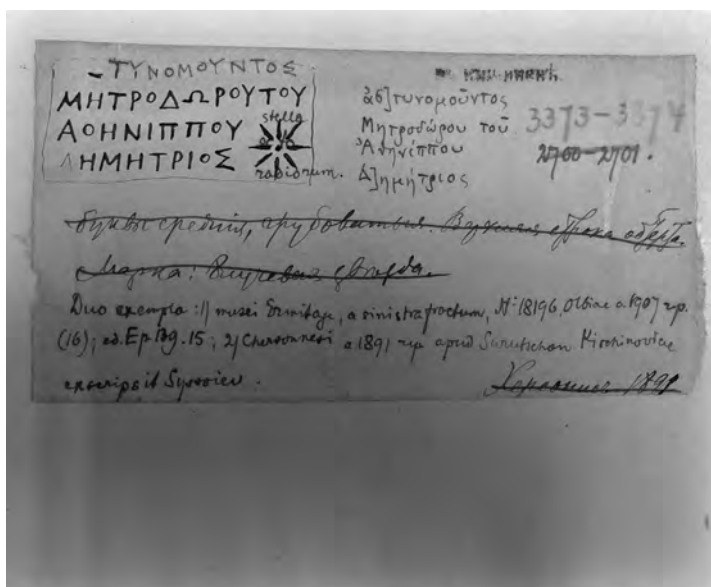 –ΤΥΝΟΜΟΥΝΤΟΣ
ΜΗΤΡΟΔΩΡΟΥΤΟΥ
ΑΘΗΝΙΠΠΟΥ
ΔΗΜΗΤΡΙΟΣ
stella
octo
radiorum.
ἀσ]τυνομοῦντος
Μητροδώρου τοῦ
Ἀθηνίππου
Δ]ημήτριος
3373-3374
2700-2701.
Буквы средния, грубоватыя. Верхняя строка
Марка: звезда.
Duo exempla: 1/ musei Ermitage, a sinistra fractum, № 18196, Olbiae a 1907 rep.
(16); ed. Ep. 15; 2/ Chersonnesi a 1891 rep apud Surutschan Kischinoviae
exscripsit Syssoiev.
Херсонес 1891